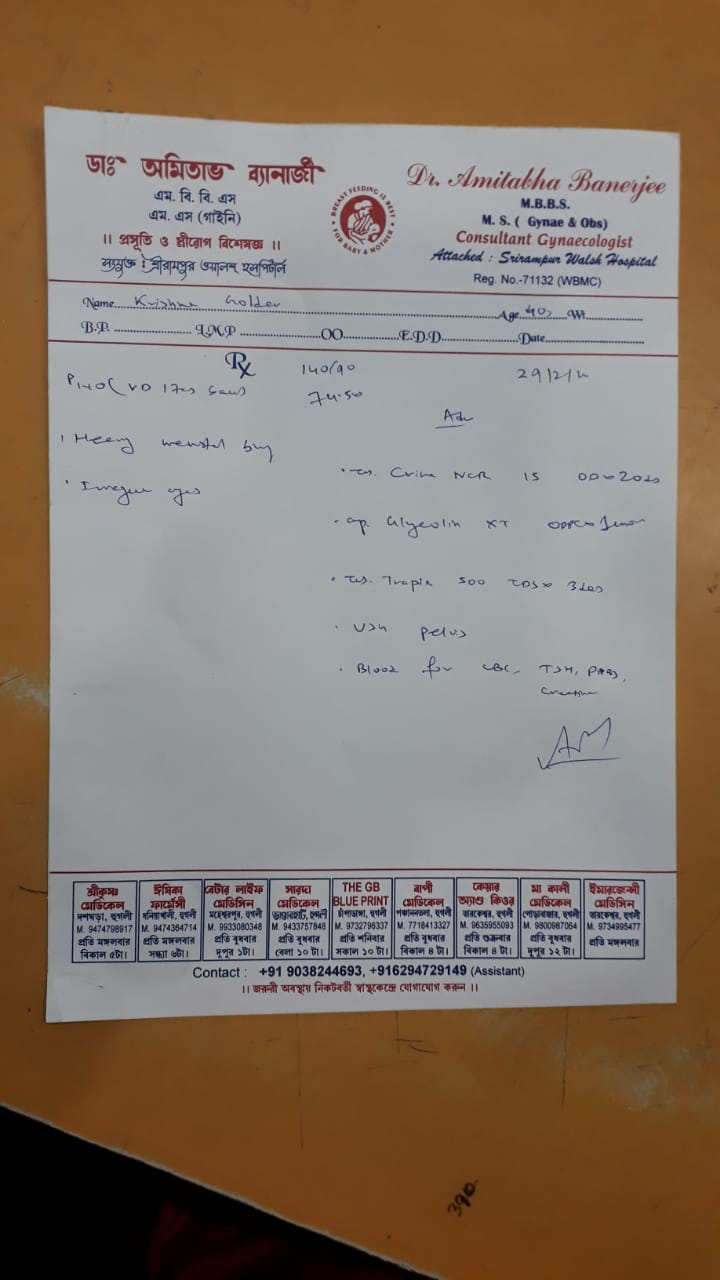 ডাঃ অমিতাভ ব্যানার্জী
এম. বি. বি. এস
এম. এস (গাইনি)
।। প্রসূতি ও স্ত্রীরোগ বিশেষজ্ঞ ।।
সংযুক্ত : শ্রীরামপুর ওয়ালশ হসপিটাল
BREAST FEEDING IS BEST
FOR BABY & MOTHER
Dr. Amitabha Banerjee
M.B.B.S.
M. S. ( Gynae & Obs)
Consultant Gynaecologist
Attached : Srirampur Walsh Hospital
Reg. No.-71132 (WBMC)
Name Krishna Golder Age 40 Wt
B.P. L.M.P OO E.D.D Date
Rx 140/90
P1+0 (
74.50
Heavy
Adv
Crina NCR 15
cap. XT
500 TDS x 3
USG pelvis
Blood for CBC, TSH,
Creatine
শ্রীকৃষ্ণ মেডিকেল
দশঘড়া, হুগলী
M. 9474798917
প্রতি মঙ্গলবার
বিকাল ৫টা।
ঈশিকা ফার্মেসী
ধনিয়াখালী, হুগলী
M. 9474364714
প্রতি মঙ্গলবার
সন্ধ্যা ৬টা।
বেটার লাইফ মেডিসিন
মহেশ্বরপুর, হুগলী
M. 9933080348
প্রতি বুধবার
দুপুর ১টা।
সারদা মেডিকেল
হুগলী
M. 9433757848
প্রতি বুধবার
বেলা ১০ টা।
THE GB
BLUE PRINT
চাঁপাডাঙ্গা, হুগলী
M. 9732796337
প্রতি শনিবার
সকাল ১০ টা।
বাণী মেডিকেল
পঞ্চাননতলা, হুগলী
M. 7718413327
প্রতি বুধবার
বিকাল ৪ টা।
কেয়ার অ্যাণ্ড কিওর
তারকেশ্বর, হুগলী
M. 9635955093
প্রতি শুক্রবার
বিকাল ৪ টা।
মা কালী মেডিকেল
পোড়াবাজার, হুগলী
M. 9800987064
প্রতি বুধবার
দুপুর ১২ টা।
ইমারজেন্সী মেডিসিন
তারকেশ্বর, হুগলী
M. 9734995477
প্রতি মঙ্গলবার
Contact : +91 9038244693, +916294729149 (Assistant)
।। জরুরী অবস্থায় নিকটবর্তী স্বাস্থ্যকেন্দ্রে যোগাযোগ করুন ।।
390